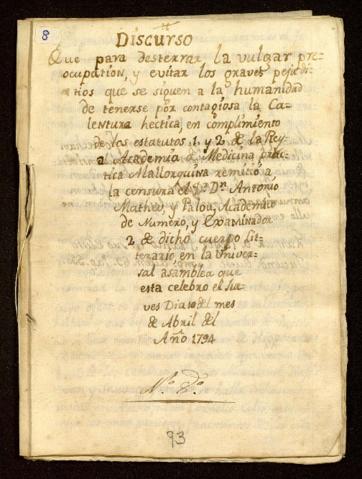 8
Discurso
Que para desterrar la vulgar pre
ocupation, y evitar los graves perjudi
tios que se siguen a la humanidad
de tenerse por contagiosa la Ca-
lentura hectica, en complimiento
de los estatutos 1. y 2. de la Rey
al Academia de Medicina prac-
tica Mallorquina remitio a
la censura el Dn. Antonio
Matheu, y Palou, Academico
de Numero, y Examinador
2. de dicho cuerpo Lit-
terario, en la Univer-
sal asamblea que
esta celebro el Jue
ves Dia 10 del mes
de Abril del
Año 1794
No. 8o.
93